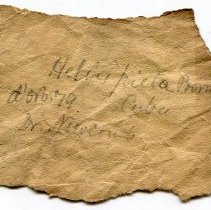 Helix picta Born
Cuba
Dr. Newcomb